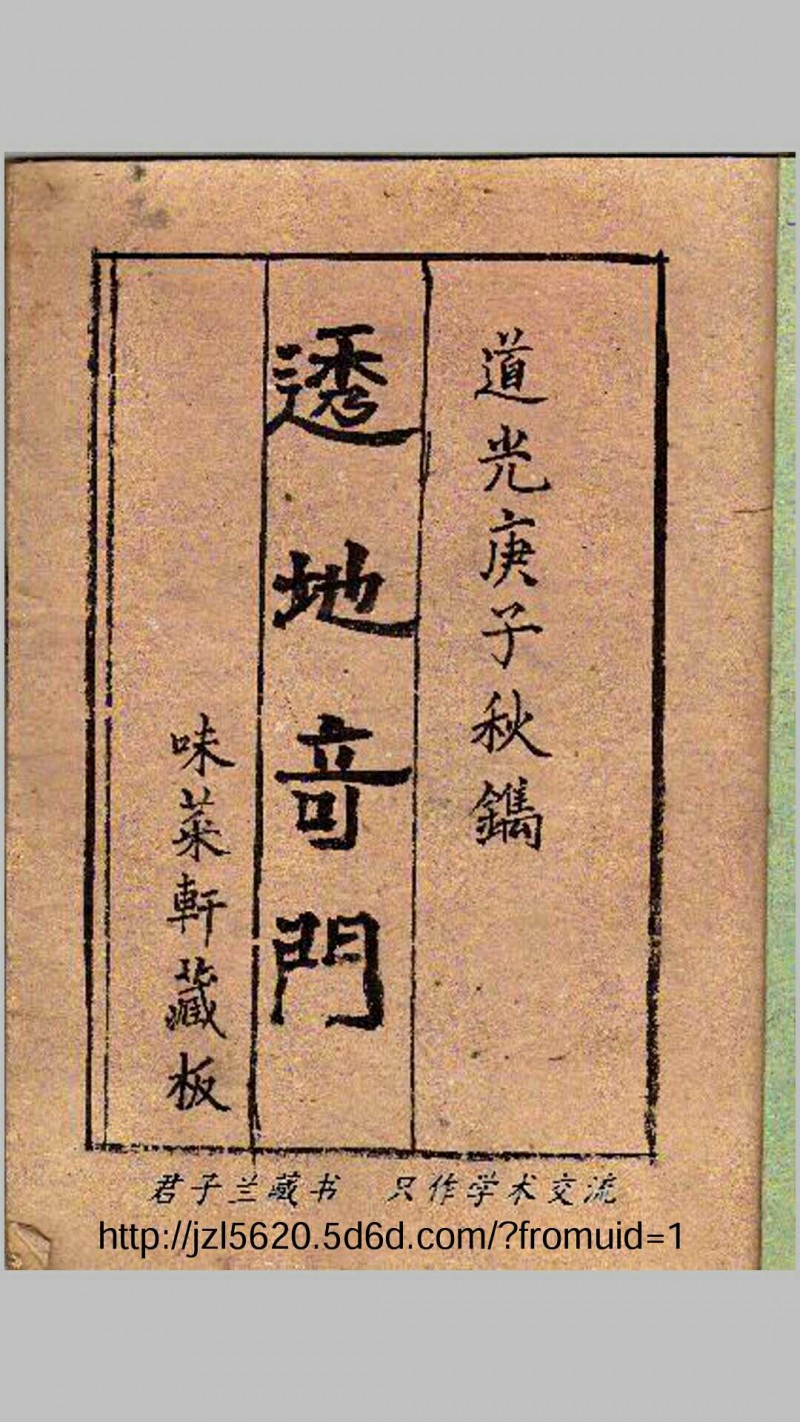 道光庚子秋鐫
透地奇門
味菜軒藏板
君子兰藏书 只作学术交流
http://jzl5620.5d6d.com/?fromuid=1